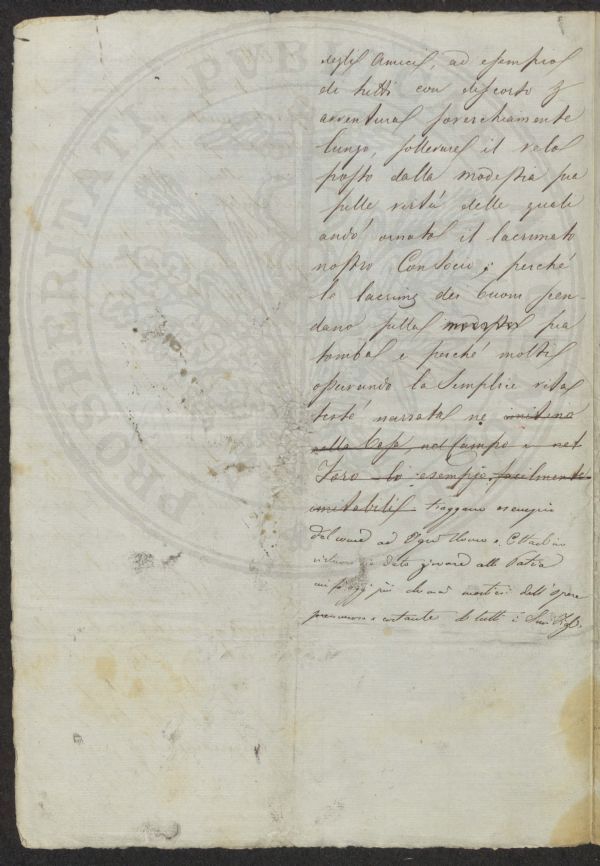 PROSPERITATI PUBLICAE
degli Amici, ad esempio
di tutti con discorso
avventura soverchiamente
lungo, sollevare il velo
posto dalla modestia
sulle virtù delle quali
andò ornato il lacrimato
nostro Consocio; perché
le lacrime dei buoni scen-
dano sulla sua
tomba e perché molti
osservando la semplice vita
testé narrata ne
nella Casa, nel Campo e nel
Foro lo esempio facilmente
imitabile traggano esempio
ad Ogni Uomo e Cittadino
virtuoso è dato giovare alla Patria
oggi più che mai dell'opera
e costante di tutti i Suoi Figli.